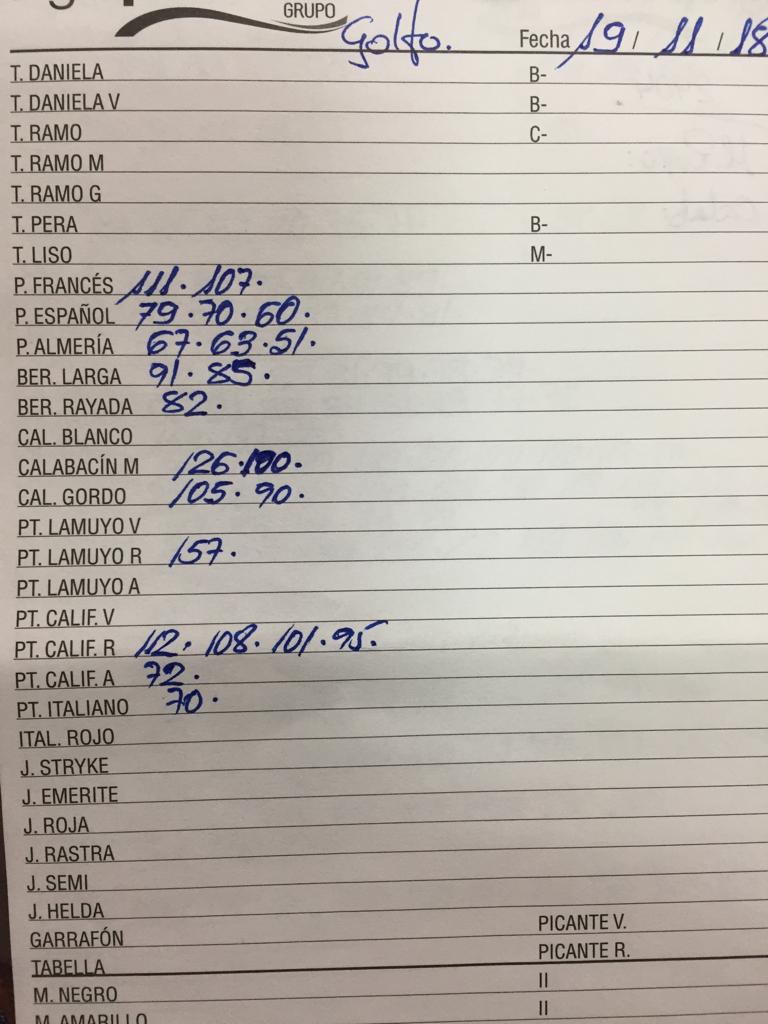 GRUPO Golfo. Fecha 19 / 11 / 18
T. DANIELA B-
T. DANIELA V B-
T. RAMO C-
T. RAMO M
T. RAMO G
T. PERA B-
T. LISO M-
P. FRANCÉS 111. 107.
P. ESPAÑOL 79.70.60.
P. ALMERÍA 67.63.51.
BER. LARGA 91. 85.
BER. RAYADA 82.
CAL. BLANCO
CALABACÍN M 126.100.
CAL. GORDO 105. 90.
PT. LAMUYO V
PT. LAMUYO R 157.
PT. LAMUYO A
PT. CALIF. V
PT. CALIF. R 112. 108. 101.95.
PT. CALIF. A 72.
PT. ITALIANO 70.
ITAL. ROJO
J. STRYKE
J. EMERITE
J. ROJA
J. RASTRA
J. SEMI
J. HELDA
GARRAFÓN PICANTE V.
TABELLA PICANTE R.
M. NEGRO II
M. AMARILLO II